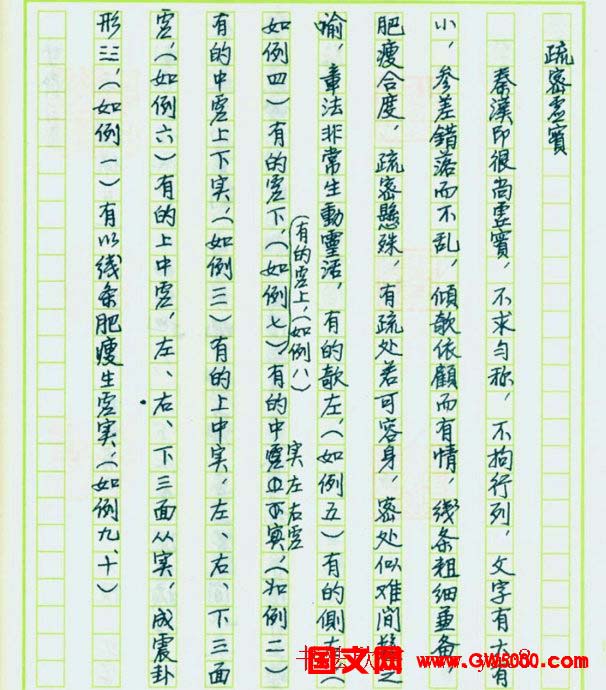 疏密虚實
秦漢印很尚虚實，不求匀称，不拘行列，文字有大有
小，參差錯落而不乱，傾欹依顧而有情，线条粗细兼备，
肥瘦合度，疏密懸殊，有疏处若可容身，密处似难间髮之
喻，章法非常生動靈活，有的欹左，（如例五）有的側右（
（有的虚上，（如例八）
如例四）有的虚下，（如例七）有的中，（如例二）
实左右虚
有的中虚上下实，（如例三）有的上中实，左、右、下三面
虚，（如例六）有的上中虚，左、右、下三面从实，成震卦
形☳，（如例一）有以线条肥瘦生虚实，（如例九、十）
国文网 www.GW5000.com